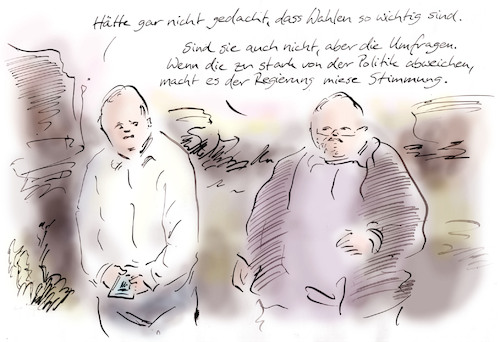 Hätte gar nicht gedacht, dass Wahlen so wichtig sind.
Sind sie auch nicht, aber die Umfragen.
Wenn die zu stark von der Politik abweichen,
macht es der Regierung miese Stimmung.